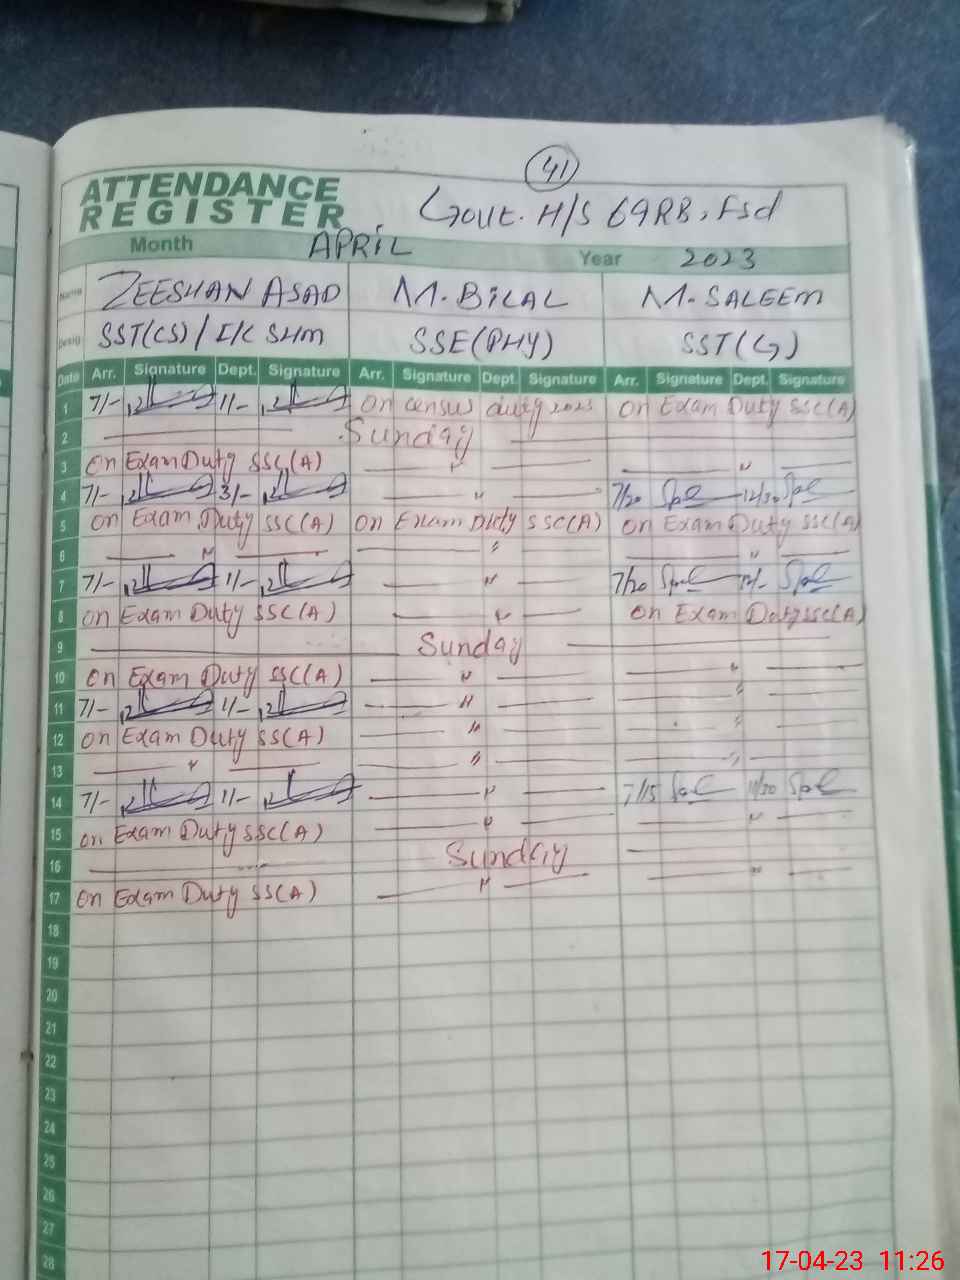 41
ATTENDANCE
REGISTER
Govt. H/S 69RB, Fsd
Month APRIL Year 2023
Name ZEESHAN ASAD M. BILAL M. SALEEM
Desig SST(CS)/I/C SHM SSE(PHY) SST(G)
Date Arr. Signature Dept. Signature Arr. Signature Dept. Signature Arr. Signature Dept. Signature
1 7/- 1/- On census duty 2023 On Exam Duty SSC(A)
2 Sunday
3 On Exam Duty SSC(A) " "
4 7/- 3/- " 7/20 12/30
5 On Exam Duty SSC(A) On Exam Duty SSC(A) On Exam Duty SSC(A)
6 " " "
7 7/- 1/- " 7/20 12/-
8 On Exam Duty SSC(A) " On Exam Duty SSC(A)
9 Sunday
10 On Exam Duty SSC(A) " "
11 7/- 1/- " "
12 On Exam Duty SSC(A) " "
13 " " "
14 7/- 1/- " 7/15 11/30
15 On Exam Duty SSC(A) " "
16 Sunday
17 On Exam Duty SSC(A) " "
18
19
20
21
22
23
24
25
26
27
28
17-04-23 11:26